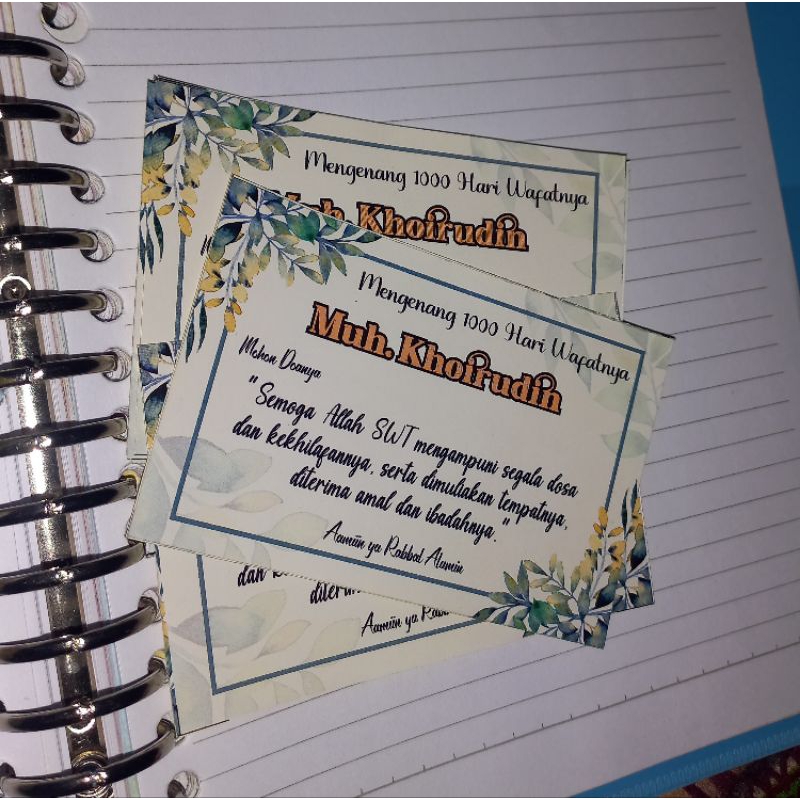 Mengenang 1000 Hari Wafatnya
Muh. Khoirudin
Mengenang 1000 Hari Wafatnya
Muh. Khoirudin
Mohon Doanya
"Semoga Allah SWT mengampuni segala dosa
dan kekhilafannya, serta dimuliakan tempatnya,
diterima amal dan ibadahnya."
Aamiin ya Rabbal Alamin
dan
Aamiin ya